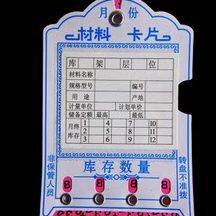 月 份
材料 卡片
库 架 层 位
材料名称
规格型号 编号
用途 产地
计量单位 计划单价
储备定额 最高 最低
月终库存 1 4 7 10
2 5 8 11
3 6 9 12
库存数量
非保管人员
转盘不准拨
8 8 8 8